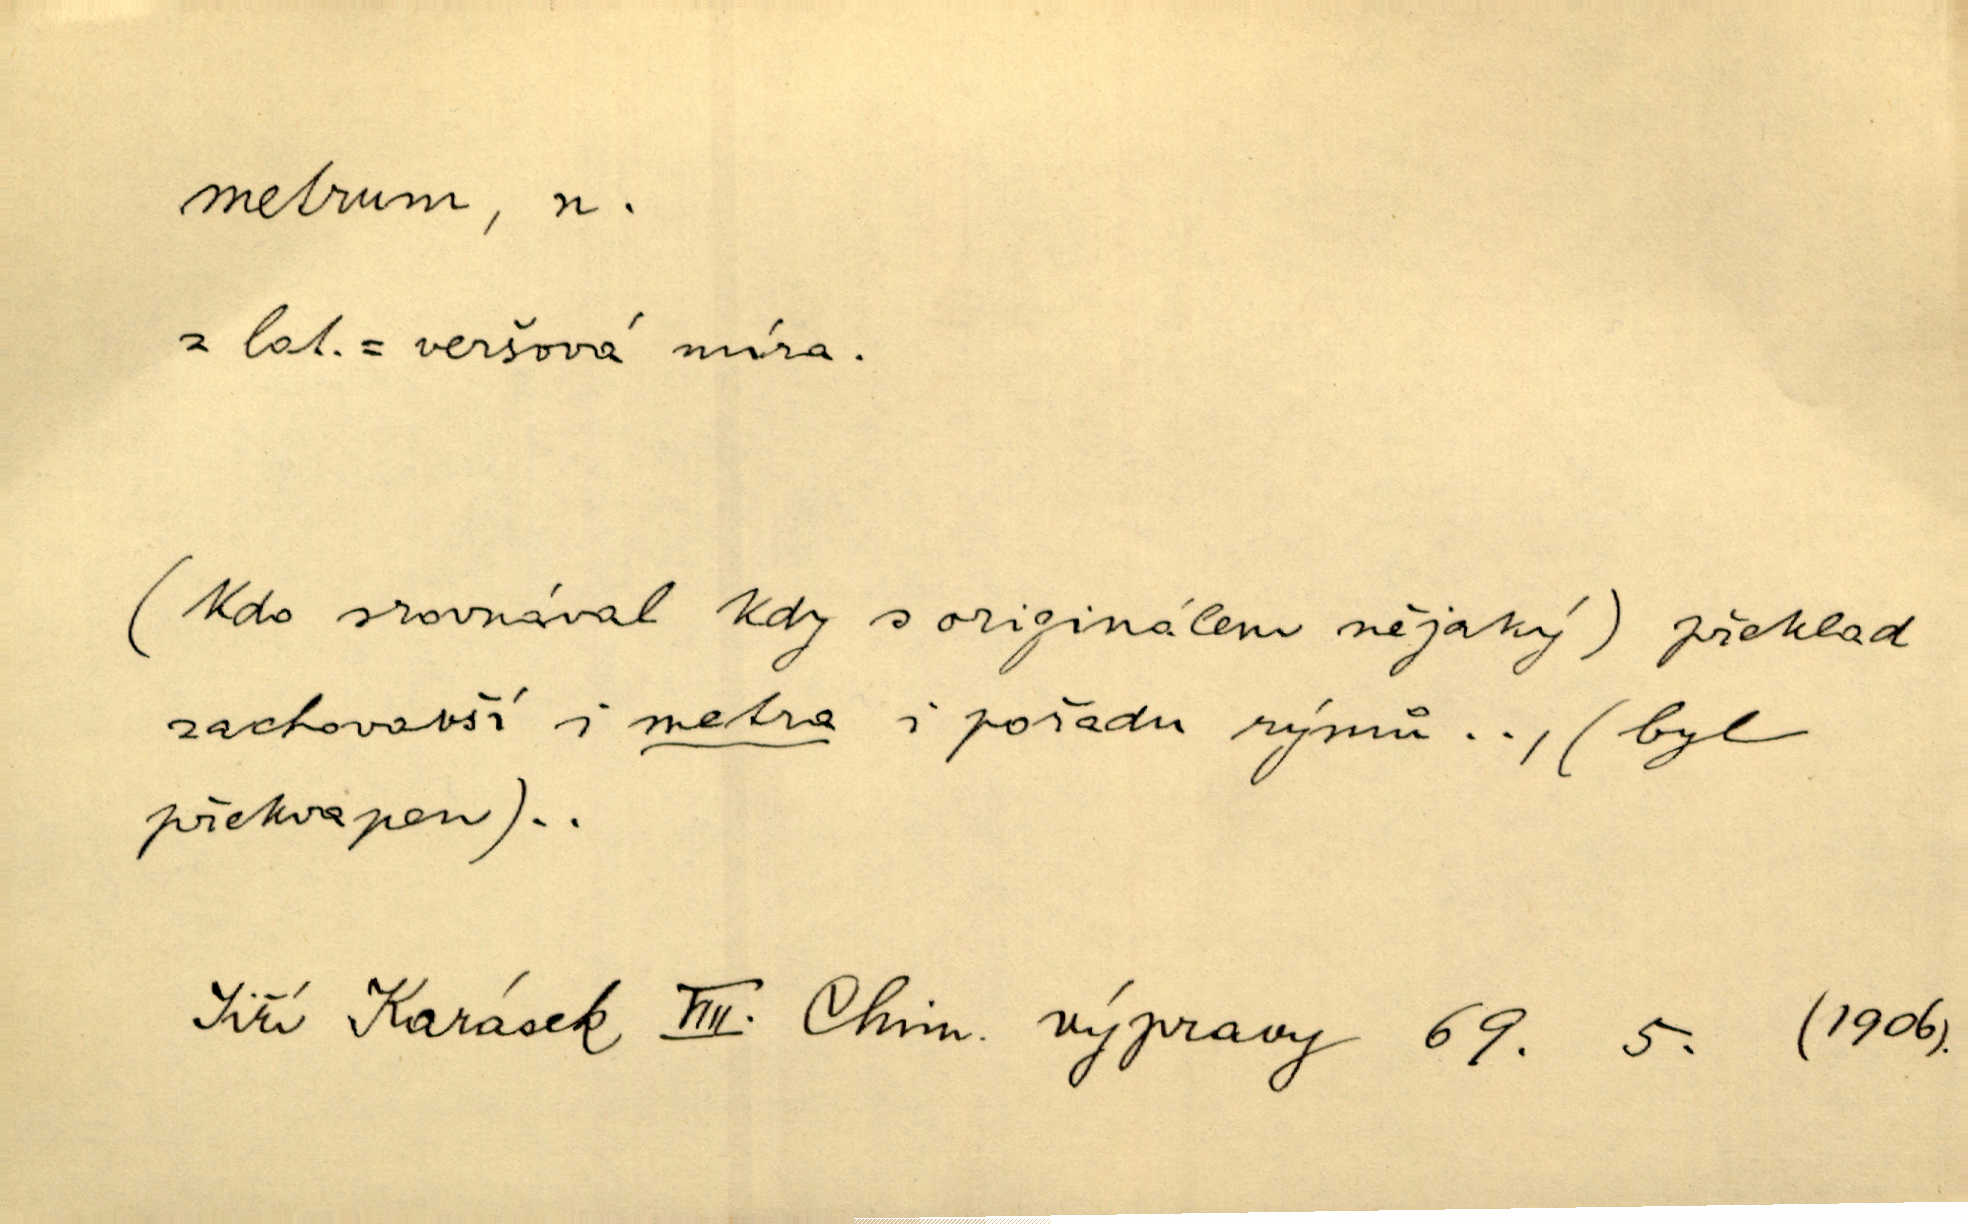 metrum, n.
z lat. = veršová míra.
(Kdo srovnával kdy s originálem nějaký) překlad
zachovavší i metra i pořadu rýmů .., (byl
překvapen)..
Jiří Karásek VIII. Chim. výpravy 69. 5. (1906).